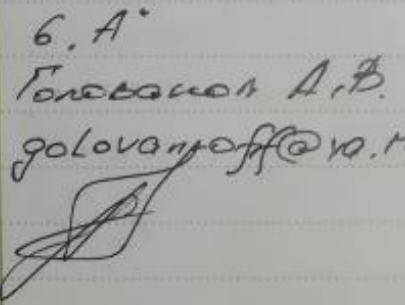 6. А"
Голованов А.В.
golovanoff@ya.r